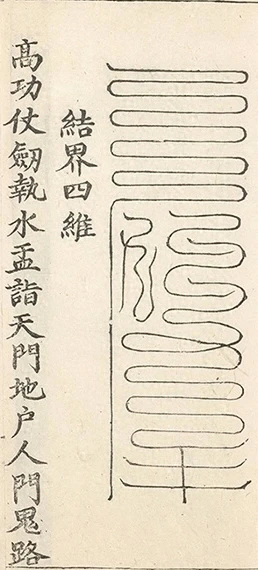 結界四維
高功仗劒執水盂詣天門地户人門鬼路